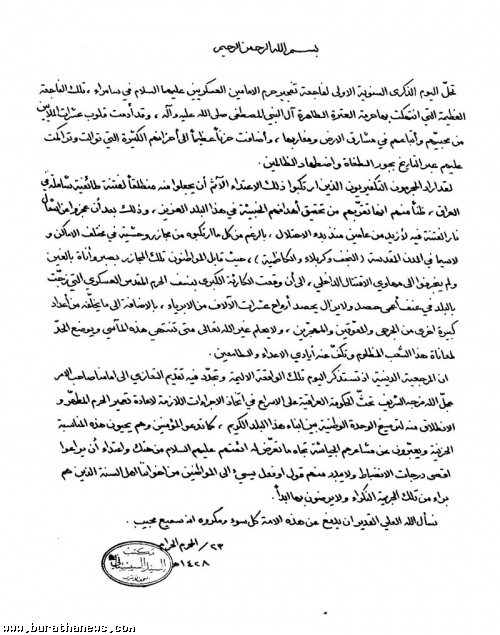 بسم الله الرحمن الرحيم
تحلّ اليوم الذكرى السنوية الاولى لفاجعة تفجير حرم الامامين العسكريين عليهما السلام في سامراء ، تلك الفاجعة
العظيمة التي انتهكت بها حرمة العترة الطاهرة آل النبي المصطفى صلى الله عليه وآله ، وقد أدمت قلوب عشرات الملايين
من محبيهم وأتباعهم في مشارق الارض ومغاربها ، وأضافت حزناً عظيماً الى أحزانهم الكثيرة التي توالت وتراكمت
عليهم عبر التاريخ بجور الطغاة واضطهاد الظالمين .
لقد اراد المجرمون التكفيريون الذين ارتكبوا ذلك الاعتداء الآثم أن يجعلوا منه منطلقاً لفتنة طائفية شاملة في
العراق ، ظناً منهم انها تقرّبهم من تحقيق أهدافهم الخبيثة في هذا البلد العزيز ، وذلك بعد أن عجزوا عن اشعال
نار الفتنة فيه لأزيد من عامين منذ بدء الاحتلال ، بالرغم من كل ما ارتكبوه من مجازر وحشية في مختلف الاماكن و
لاسيما في المدن المقدسة ( النجف وكربلاء والكاظمية ) ، حيث قابل المواطنون تلك المجازر بصبر وأناة بالغين
ولم ينجرفوا الى مهاوي الاقتتال الداخلي ، الى أن وقعت الكارثة الكبرى بنسف الحرم المقدس العسكري التي زجّت
بالبلد في عنف أعمى حصد ولايزال يحصد أرواح عشرات الآلاف من الابرياء ، بالاضافة الى ما يخلّفه من أعداد
كبيرة اخرى من الجرحى والمعوقين والمهجرين ، ولا يعلم غير الله تعالى متى تنتهي هذه المآسي ويوضع الحدّ
لمعاناة هذا الشعب المظلوم وتكفّ عنه أيادي الاعداء والطامعين .
ان المرجعية الدينية اذ تستذكر اليوم تلك الواقعة الاليمة وتجدّد فيه تقديم التعازي الى امامنا صاحب الامر
عجّل الله فرجه الشريف تحثّ الحكومة العراقية على الاسراع في اتخاذ الاجراءات اللازمة لاعادة تعمير الحرم المطهر و
الانطلاق منه لترميم الوحدة الوطنية بين ابناء هذا البلد الكريم ، كما تدعو المؤمنين وهم يحيون هذه المناسبة
الحزينة ويعبّرون عن مشاعرهم الجياشة تجاه ما تعرّض له ائمتهم عليهم السلام من هتك واعتداء أن يراعوا
اقصى درجات الانضباط ولا يبدر منهم قول او فعل يسيء الى المواطنين من اخواننا اهل السنة الذين هم
براء من تلك الجريمة النكراء ولا يرضون بها ابداً .
نسأل الله العلي القدير ان يدفع عن هذه الامة كل سوء ومكروه انه سميع مجيب .
٢٣/ المحرم الحرام
١٤٢٨هـ
مكتب
السيد السيستاني
www.burathanews.com